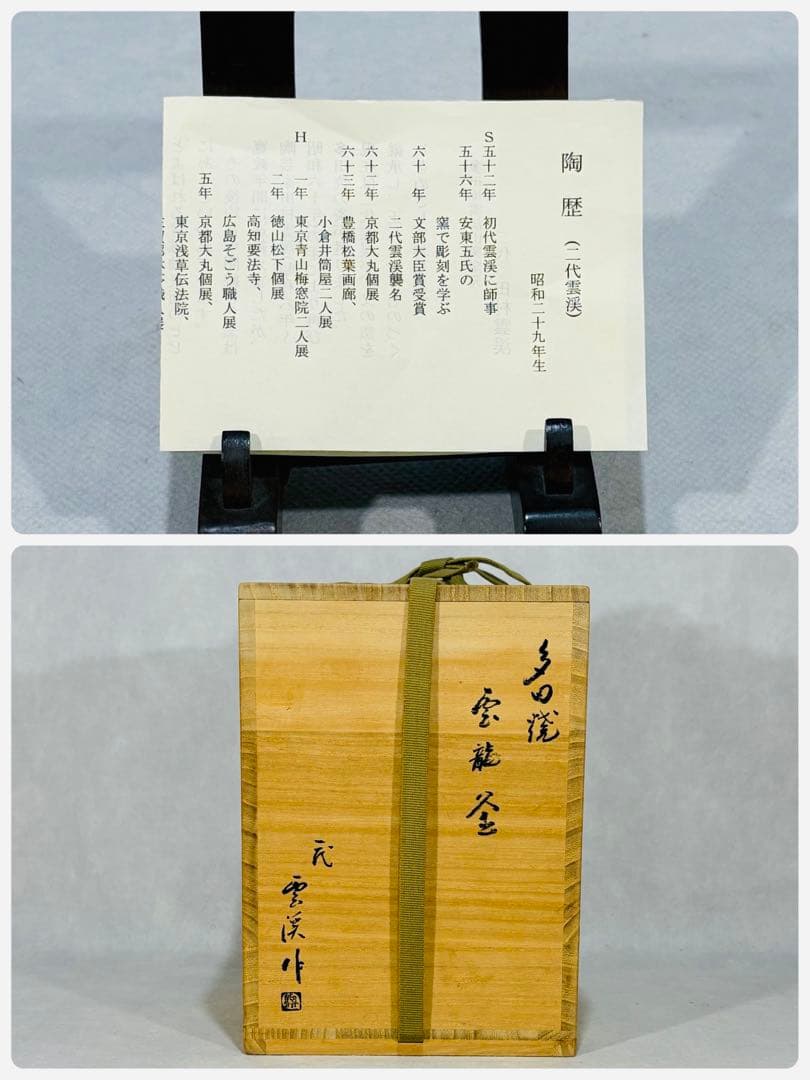 陶歴(二代雲渓)
昭和二十九年生
S五十二年 初代雲渓に師事
五十六年 安東五氏の
窯で彫刻を学ぶ
六十一年 文部大臣賞受賞
二代雲渓襲名
六十二年 京都大丸個展
六十三年 豊橋松葉画廊、
小倉井筒屋二人展
H一年 東京青山梅窓院二人展
二年 徳山松下個展
高知要法寺、
広島そごう職人展
五年 京都大丸個展、
東京浅草伝法院、
多田焼
雲龍釜
二代
雲渓作